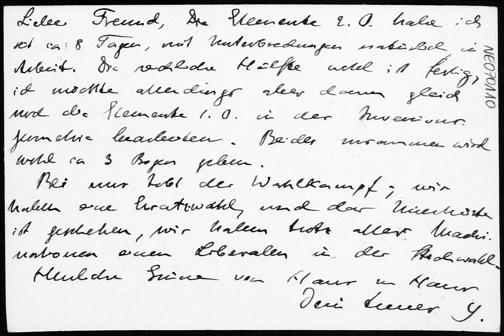 Lieber Freund, Die Elemente 2. O. habe ich
seit ca. 8 Tagen, mit Unterbrechungen natürlich, in
Arbeit. Die reichliche Hälfte wohl ist fertig,
ich möchte allerdings aber dann gleich
noch die Elemente 1. O. in der
bearbeiten. Beides zusammen wird
wohl ca 3 Bogen geben.
Bei uns tobt der Wahlkampf; wir
haben eine Ersatzwahl, und das Unerhörte
ist geschehen, wir haben trotz aller Machi-
nationen einen Liberalen in der Stichwahl.
Herzliche Grüsse von Haus zu Haus
Dein treuer
NE070110